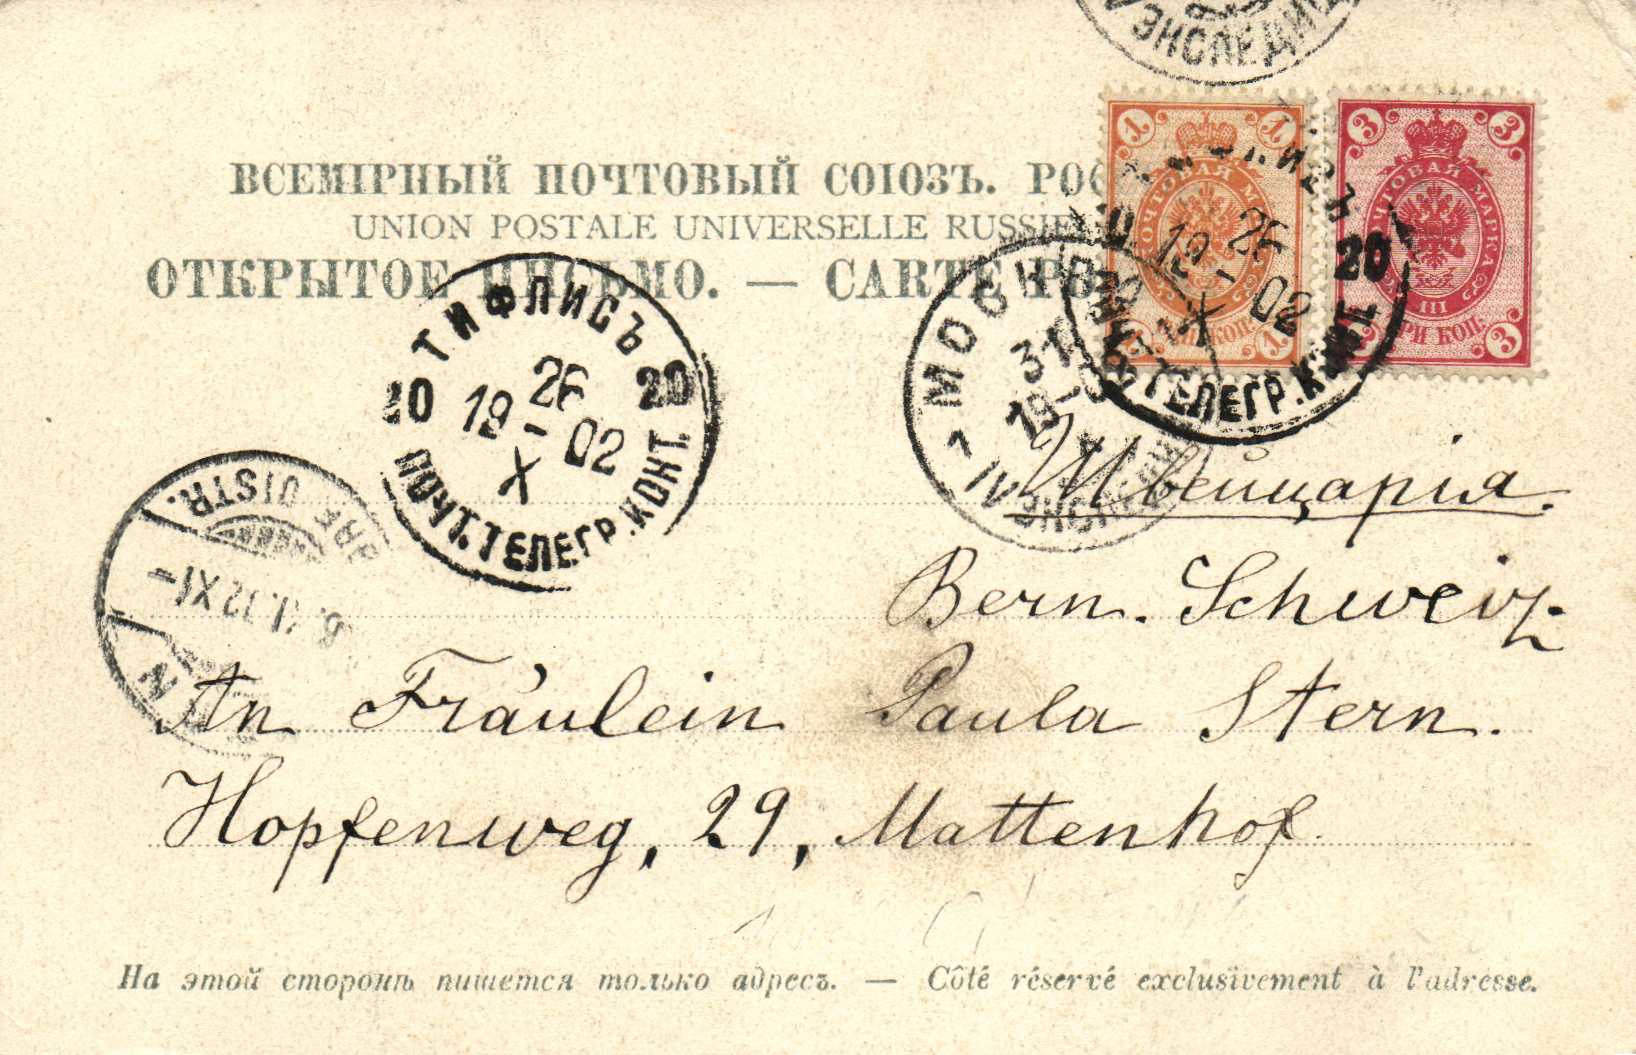 ЭКСПЕДИЦ
ВСЕМІРНЫЙ ПОЧТОВЫЙ СОЮЗЪ. РОС
UNION POSTALE UNIVERSELLE RUSSIE
ОТКРЫТОЕ ПИСЬМО. — CARTE PO
1 1
ПОЧТОВАЯ МАРКА
КОП.
1 1
3 3
ПОЧТОВАЯ МАРКА
III
ТРИ КОП.
3 3
20
26
19 - 02
X
ТЕЛЕГР. КОНТ.
ТИФЛИСЪ
20 26 20
19 - 02
X
ПОЧТ. ТЕЛЕГР. КОНТ.
МОСКВА
31
19-0
DISTR.
XI-
N
Швейцарія.
Bern. Schweiz.
An Fräulein Paula Stern.
Hopfenweg, 29, Mattenhof.
На этой сторонѣ пишется только адресъ. — Côté réservé exclusivement à l'adresse.